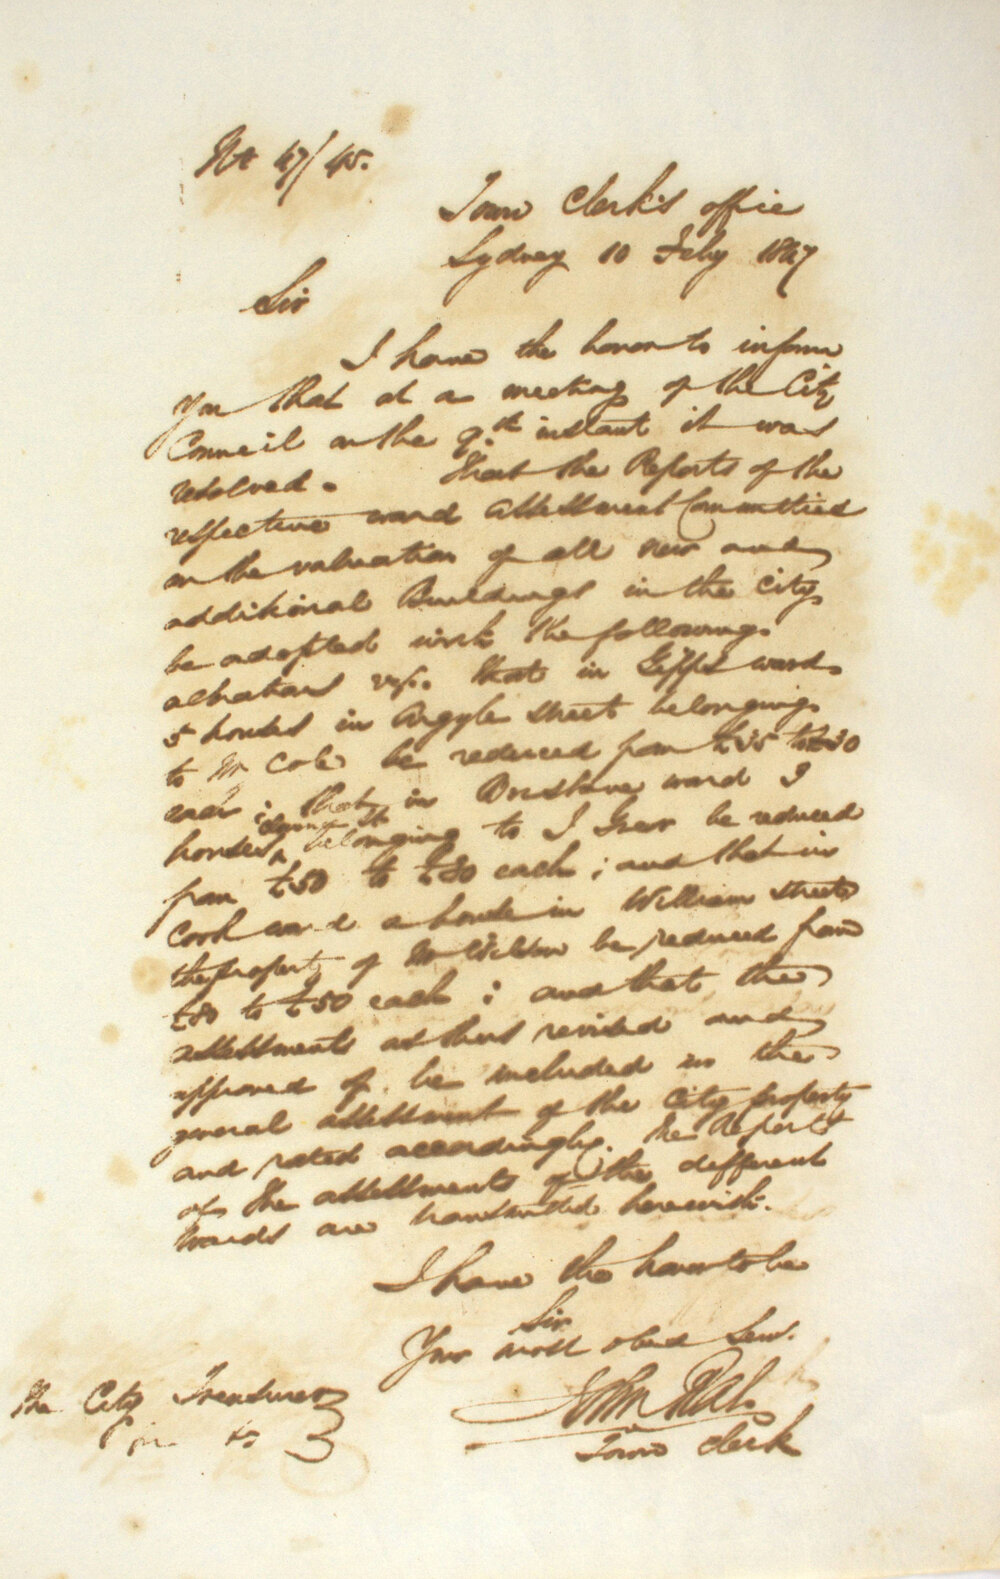 No 47/45.
Town Clerk's office
Sydney 10 Feby 1847
Sir
I have the honor to inform
you that at a meeting of the City
Council on the 9th instant it was
resolved. That the Reports of the
respective ward assessment Committees
on the valuation of all new and
additional Buildings in the City
be adopted with the following
alterations viz. that in Gipps ward
5 houses in Argyle street belonging
to Mr Cole be reduced from £35 to £30
each; that in Brisbane ward
houses belonging to J be reduced
from £50 to £30 each; and that in
Cook ward a house in William street
the property of Mr be reduced from
£80 to £50 each; and that the
assessments as thus revised and
approved of be included in the
general assessment of the City property
and rated accordingly. The Reports
of the assessments of the different
wards are transmitted herewith.
I have the honor to be
Sir
Your most obed Serv.
John Rae
Town Clerk
The City Treasurer